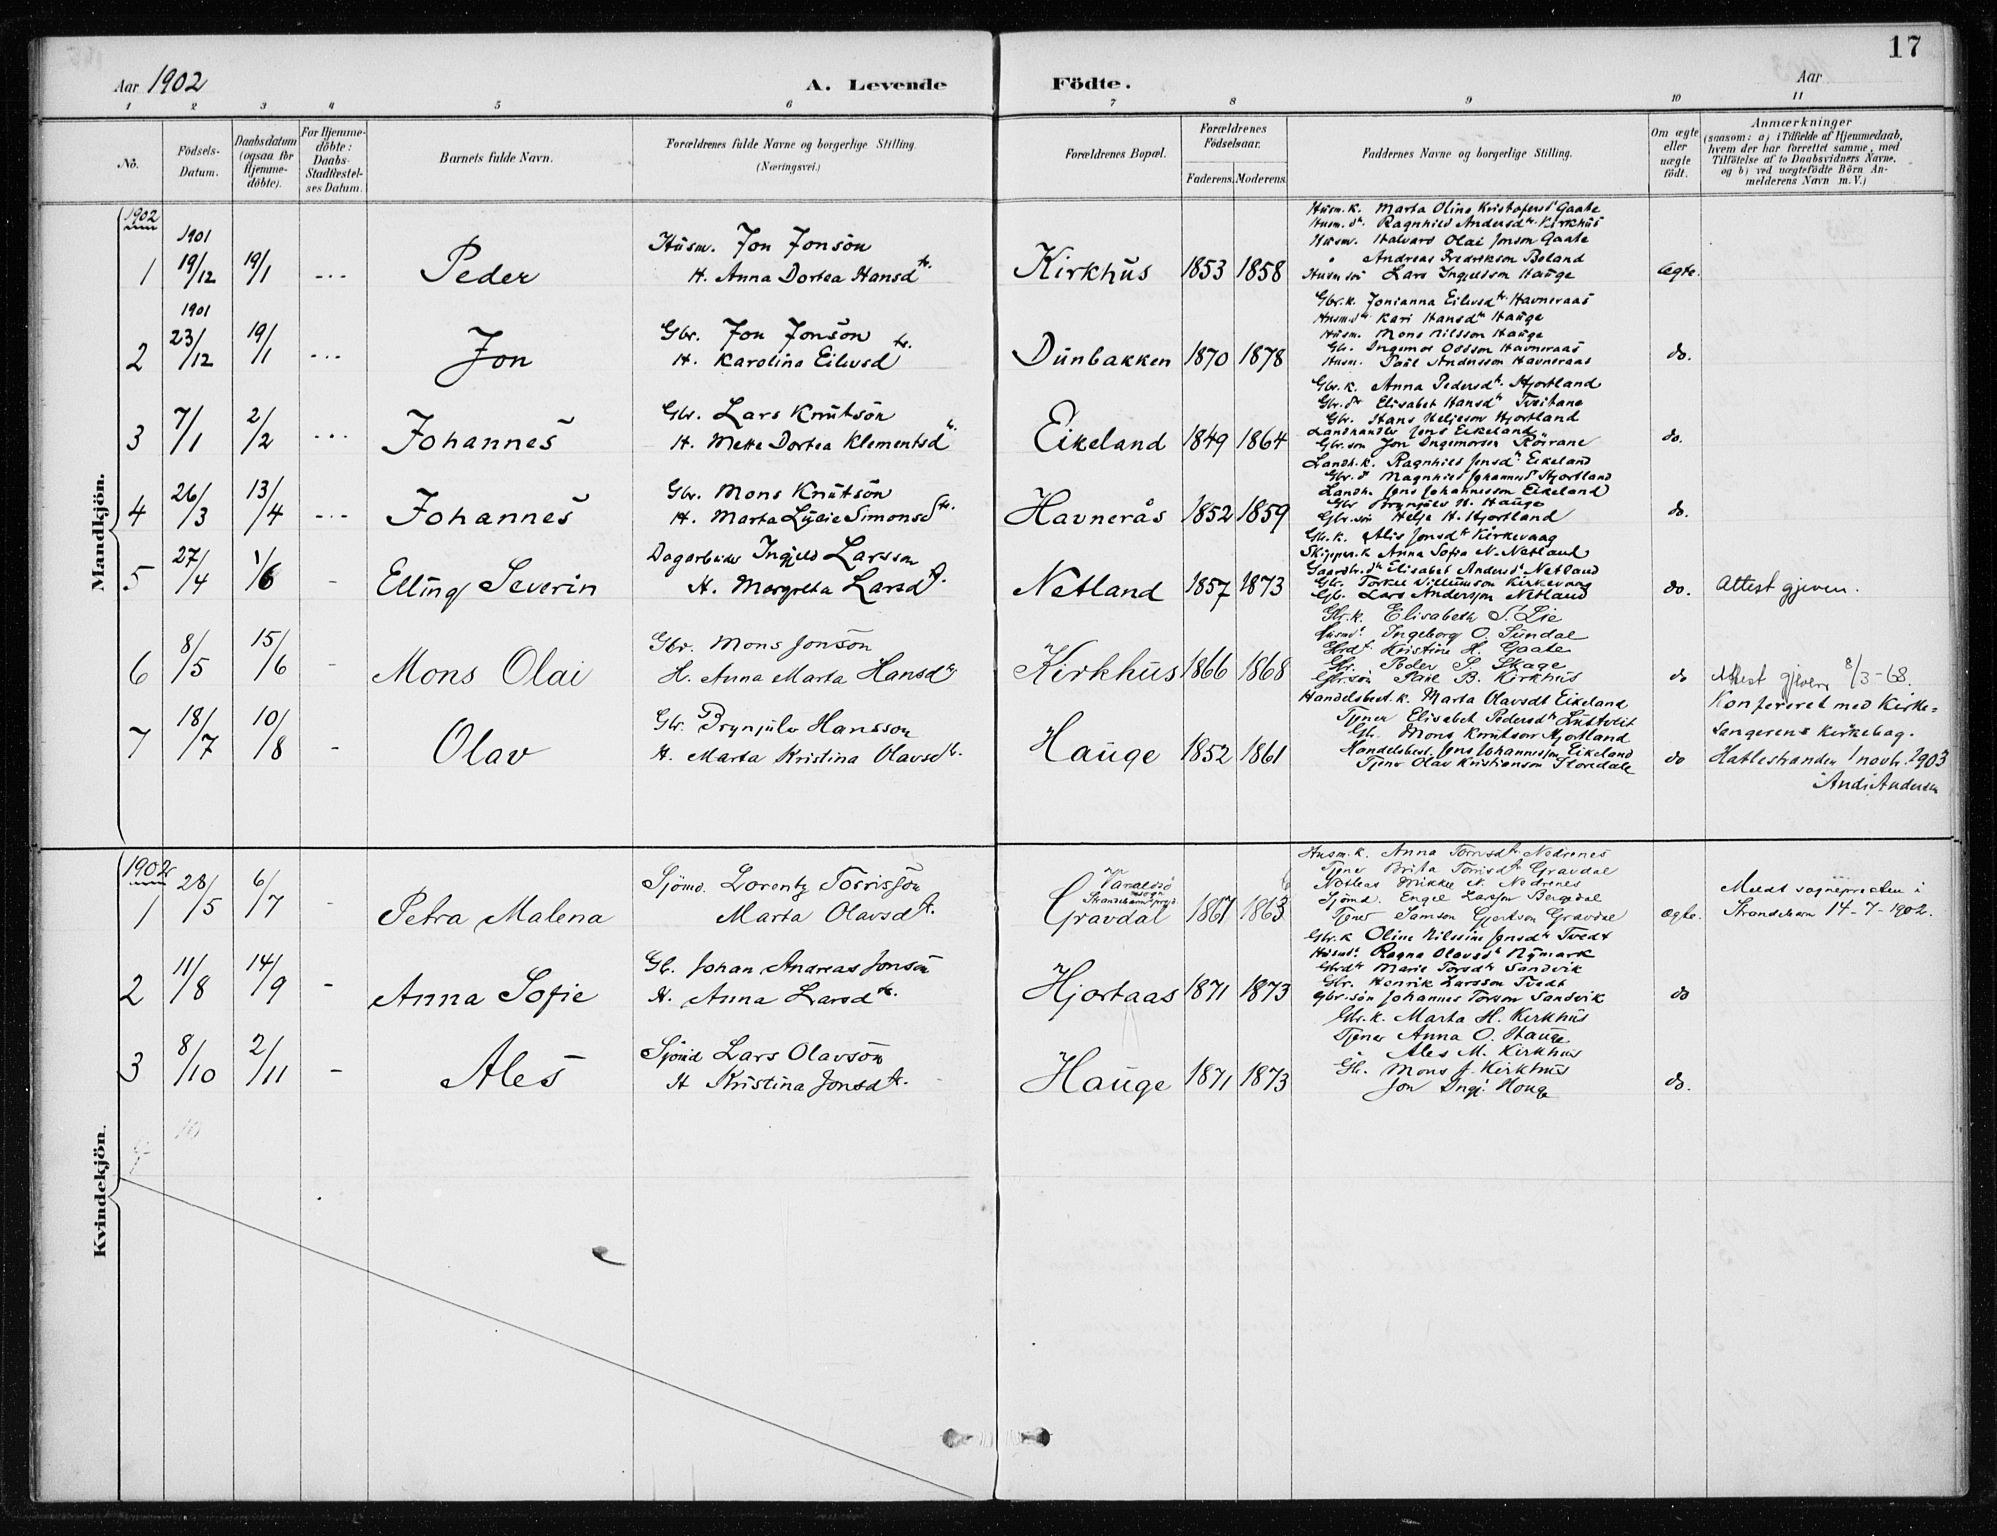 17
Aar 1902
A. Levende Födte.
Aar
1 2 3 4 5 6 7 8 9 10 11
Nô.
Födsels-Datum.
Daabsdatum (ogsaa for Hjemme-döbte).
For Hjemme-döbte: Daabs-Stadfæstel-ses Datum.
Barnets fulde Navn.
Forældrenes fulde Navne og borgerlige Stilling. (Næringsvei.)
Forældrenes Bopæl.
Forældrenes Födselsaar.
Faderens. Moderens.
Faddernes Navne og borgerlige Stilling.
Om ægte eller uægte födt.
Anmærkninger
(saasom: a) i Tilfælde af Hjemmedaab,
hvem der har forrettet samme, med
Tilföielse af to Daabsvidners Navne,
og b) ved uægtefödte Börn An-
melderens Navn m. V.)
Mandkjön.
1902
1901
1 19/12 19/1 Peder
Husm. Jon Jonsön
H. Anna Dortea Hansdtr.
Kirkhus 1853 1858
Husm.k. Marta Olina Kristofersd Gaate
Husm.dr. Ragnhild Andersdtr. Kirkhus
Husm. Halvard Olai Jonson Gaate
Andreas Fredrikson Beland
Husm.sön Lars Ingjelsson Hauge
Ægte.
1901
2 23/12 19/1 Jon
Gbr. Jon Jonsön
H. Karolina Eilevsdtr.
Dunbakken 1870 1878
Gbr.k. Jonianna Eilevsdtr. Havneraas
Husmdtr. Kari Hansdtr Hauge
Husm. Mons Nilsson Hauge
Gbr. Ingemor Odson Havneraas
Husm. Paul Andersson Havneraas
do.
3 7/1 2/2 Johannes
Gbr. Lars Knutsön
H. Mette Dortea Klementsdtr.
Eikeland 1849 1864
Gbr.k. Anna Pedersdtr. Hjortland
Gbr.dtr Elisabet Hansdtr Tveitane
Gbr. Hans Heljeson Hjortland
Landhandler Jens Eikeland
Gbr.son Jon Ingemorsen Rörrane
do.
4 26/3 13/4 Johannes
Gbr. Mons Knutsön
H. Marta Lucie Simonsdtr.
Havnerås 1852 1859
Landh.k. Ragnhild Jensdtr Eikeland
Gbr.d Magnhild Johannesd Hjortland
Landh. Jens Johannesson Eikeland
Gbr Brynjulv H. Hauge
Gbr.sön Helje H. Hjortland
do.
5 27/4 1/6 Elling Severin
Dagarbeider Ingjeld Larsson
H. Margreta Larsdtr.
Netland 1857 1873
Gbr.k. Alis Jonsdtr Kirkevaag
Skipper.k Anna Sofia N. Netland
Gaardbr.dtr Elisabet Andersdtr Netland
Gbr. Torkel Villumson Kirkevaag
Gbr. Lars Andersson Netland
do. Attest gjeven.
6 8/5 15/6 Mons Olai
Gbr. Mons Jonsön
H. Anna Marta Hansdtr
Kirkhus 1866 1868
Gbr.k. Elisabeth S. Lie
Husmdtr Ingeborg O. Sundal
Gbrdtr Kristine H. Gaate
Gbr. Peder S. Skage
Gbr.son Paul B. Kirkhus
do Attest gjeven 8/3-68.
7 18/7 10/8 Olav
Gbr. Brynjulv Hansson
H. Marta Kristina Olavsdtr.
Hauge 1852 1861
Handelsbest.k. Marta Olavsdt Eikeland
Tjener Elisabet Pedersdtr
Gbr. Mons Knutson Hjortland
Handelsbest. Jens Johannesson Eikeland
Tjener Olav Kristianson Storedale
do
Konfereret med Kirke-
sangerens kirkebog.
Hatlestranden 1 novb. 1903
And. Andersen
Kvindekjön.
1902
1 28/5 6/7 Petra Malena
Sjömd. Lorentz Torrisson
Marta Olavsdtr.
Varaldsö sogn
Strandebarm prgd.
Gravdal 1867 1863
Husm.k. Anna Torrisdtr Nedrenes
Tjener Brita Torrisdtr Gravdal
Mikkel N. Nedrenes
Sjömd. Engel Larsson Bergdal
Tjener Samson Gjertson Gravdal
ægte.
Meldt sognepresten i
Strandebarm 14-7-1902.
2 11/8 14/9 Anna Sofie
Gb. Johan Andreas Jonsön
H. Anna Larsdtr.
Hjortaas 1871 1873
Gbr.k Oline Nilssine Jensdtr Tvedt
Husmdtr Ragna Olavsd Nymark
Gbrdtr Marie Torsdtr Sandvik
Gbr. Henrik Larsson Tvedt
Gbr.sön Johannes Torson Sandvik
do
3 8/10 2/11 Ales
Sjömd Lars Olavsön
H Kristina Jonsdtr.
Hauge 1871 1873
Gbr.k. Marta H. Kirkhus
Tjener Anna O. Hauge
Ales M. Kirkhus
Gb. Mons J. Kirkhus
Jon Ingj. Hauge
do.